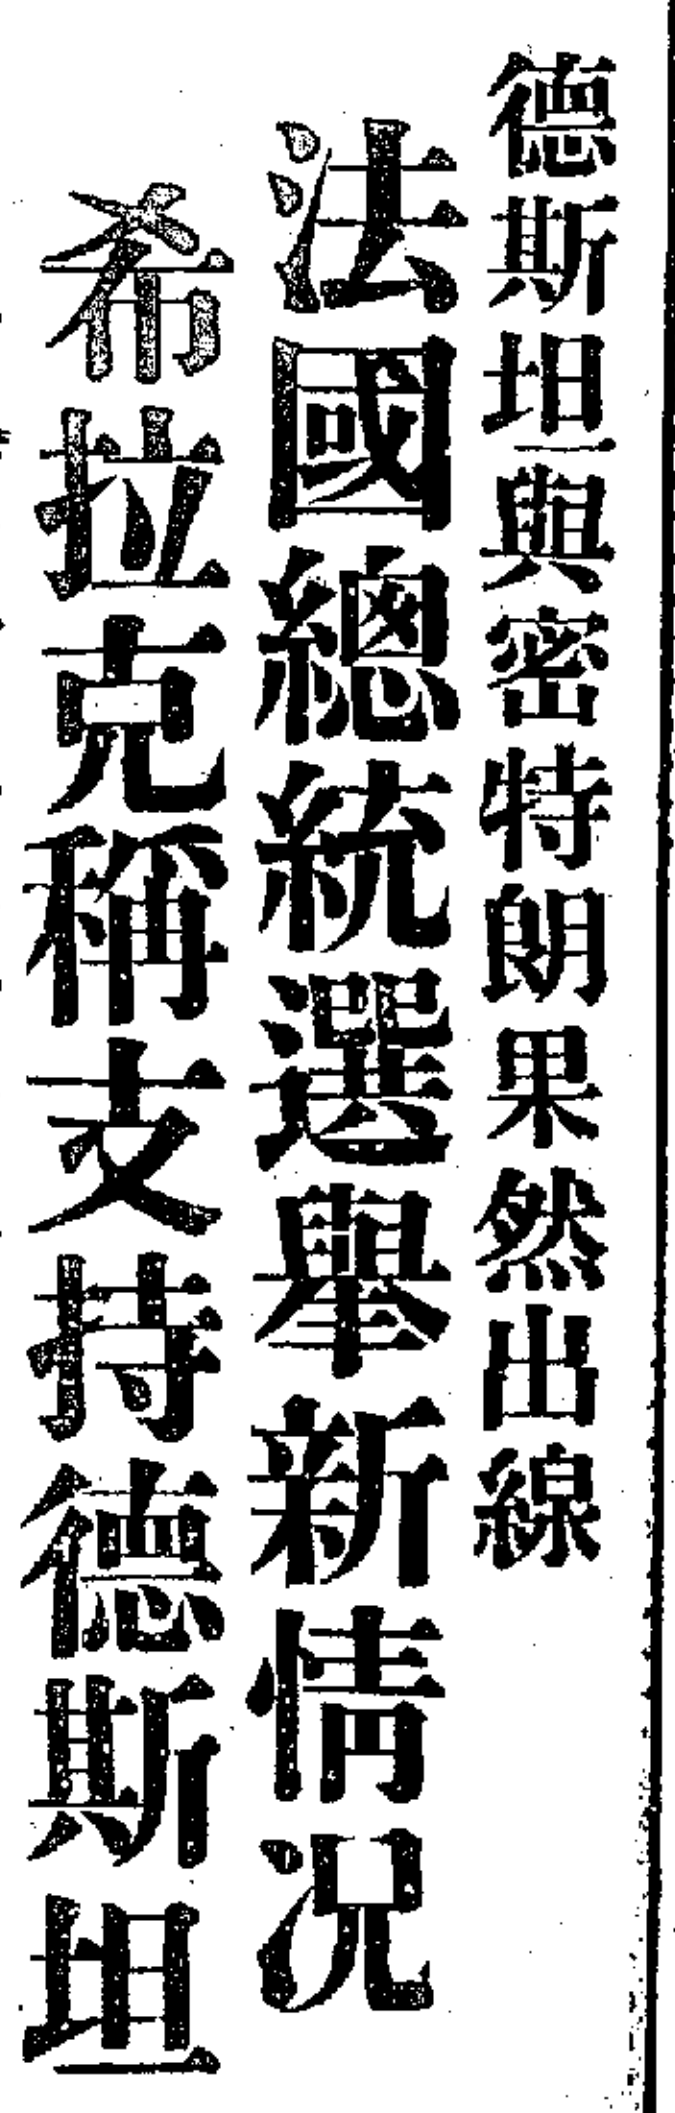 德斯坦與密特朗果然出線
法國總統選舉新情况
希拉克稱支持德斯坦